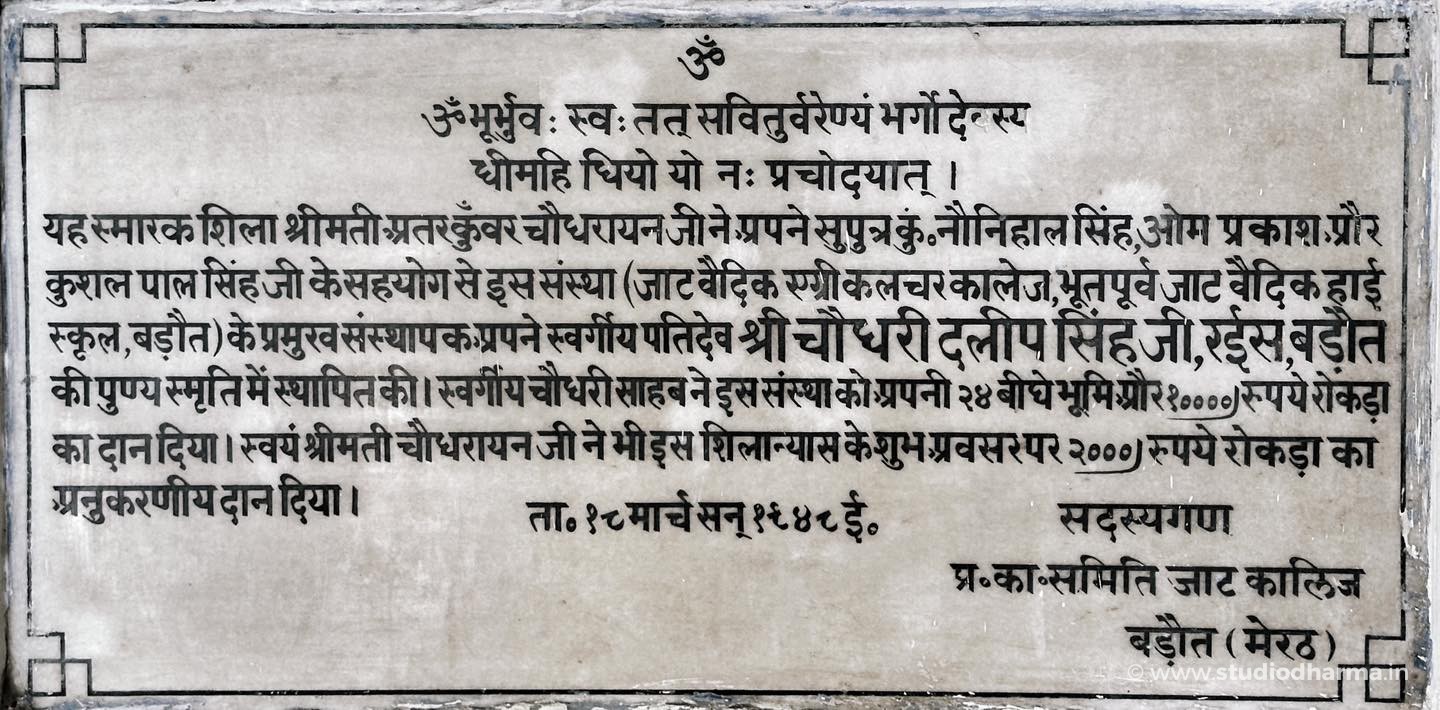 ॐ
ॐ भूर्भुवः स्वः तत् सवितुर्वरेण्यं भर्गो देवस्य
धीमहि धियो यो नः प्रचोदयात् ।
यह स्मारक शिला श्रीमती अतरकुँवर चौधरायन जी ने अपने सुपुत्र कुं॰ नौनिहाल सिंह, ओम प्रकाश और
कुशल पाल सिंह जी के सहयोग से इस संस्था (जाट वैदिक एग्रीकलचर कालेज, भूतपूर्व जाट वैदिक हाई
स्कूल, बड़ौत) के प्रमुख संस्थापक अपने स्वर्गीय पतिदेव श्री चौधरी दलीप सिंह जी, रईस, बड़ौत
की पुण्य स्मृति में स्थापित की। स्वर्गीय चौधरी साहब ने इस संस्था को अपनी २४ बीघे भूमि और १००००) रुपये रोकड़ा
का दान दिया। स्वयं श्रीमती चौधरायन जी ने भी इस शिलान्यास के शुभ अवसर पर २०००) रुपये रोकड़ा का
अनुकरणीय दान दिया।
ता॰ १८ मार्च सन् १९४८ ई॰
सदस्यगण
प्र॰ का॰ समिति जाट कालिज
बड़ौत (मेरठ)
© www.studiodharma.in